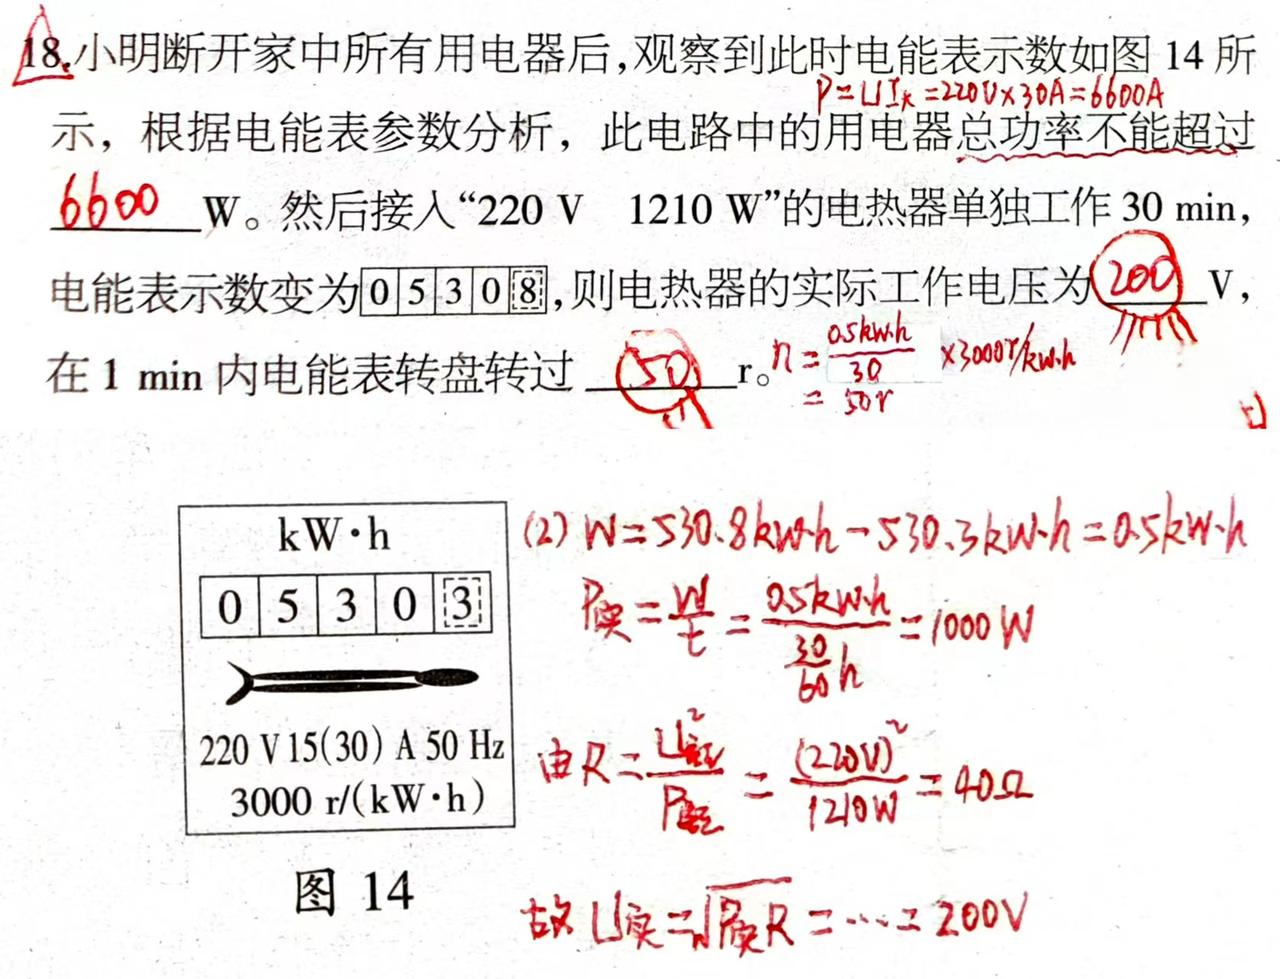 18.小明断开家中所有用电器后,观察到此时电能表示数如图 14 所
P=UI大=220V×30A=6600A
示，根据电能表参数分析，此电路中的用电器总功率不能超过
6600 W。然后接入“220 V 1210 W”的电热器单独工作 30 min,
电能表示数变为 0 5 3 0 8 ,则电热器的实际工作电压为 200 V,
在 1 min 内电能表转盘转过 50 r。
n=0.5kw·h/30 ×3000r/kw·h
=50r
kW·h
0 5 3 0 3
220 V 15(30) A 50 Hz
3000 r/(kW·h)
图 14
(2) W=530.8kw·h-530.3kW·h=0.5kW·h
P实=W/t=0.5kw·h/(30/60 h)=1000W
由R=U额²/P额=(220V)²/1210W=40Ω
故U实=√P实R=…=200V